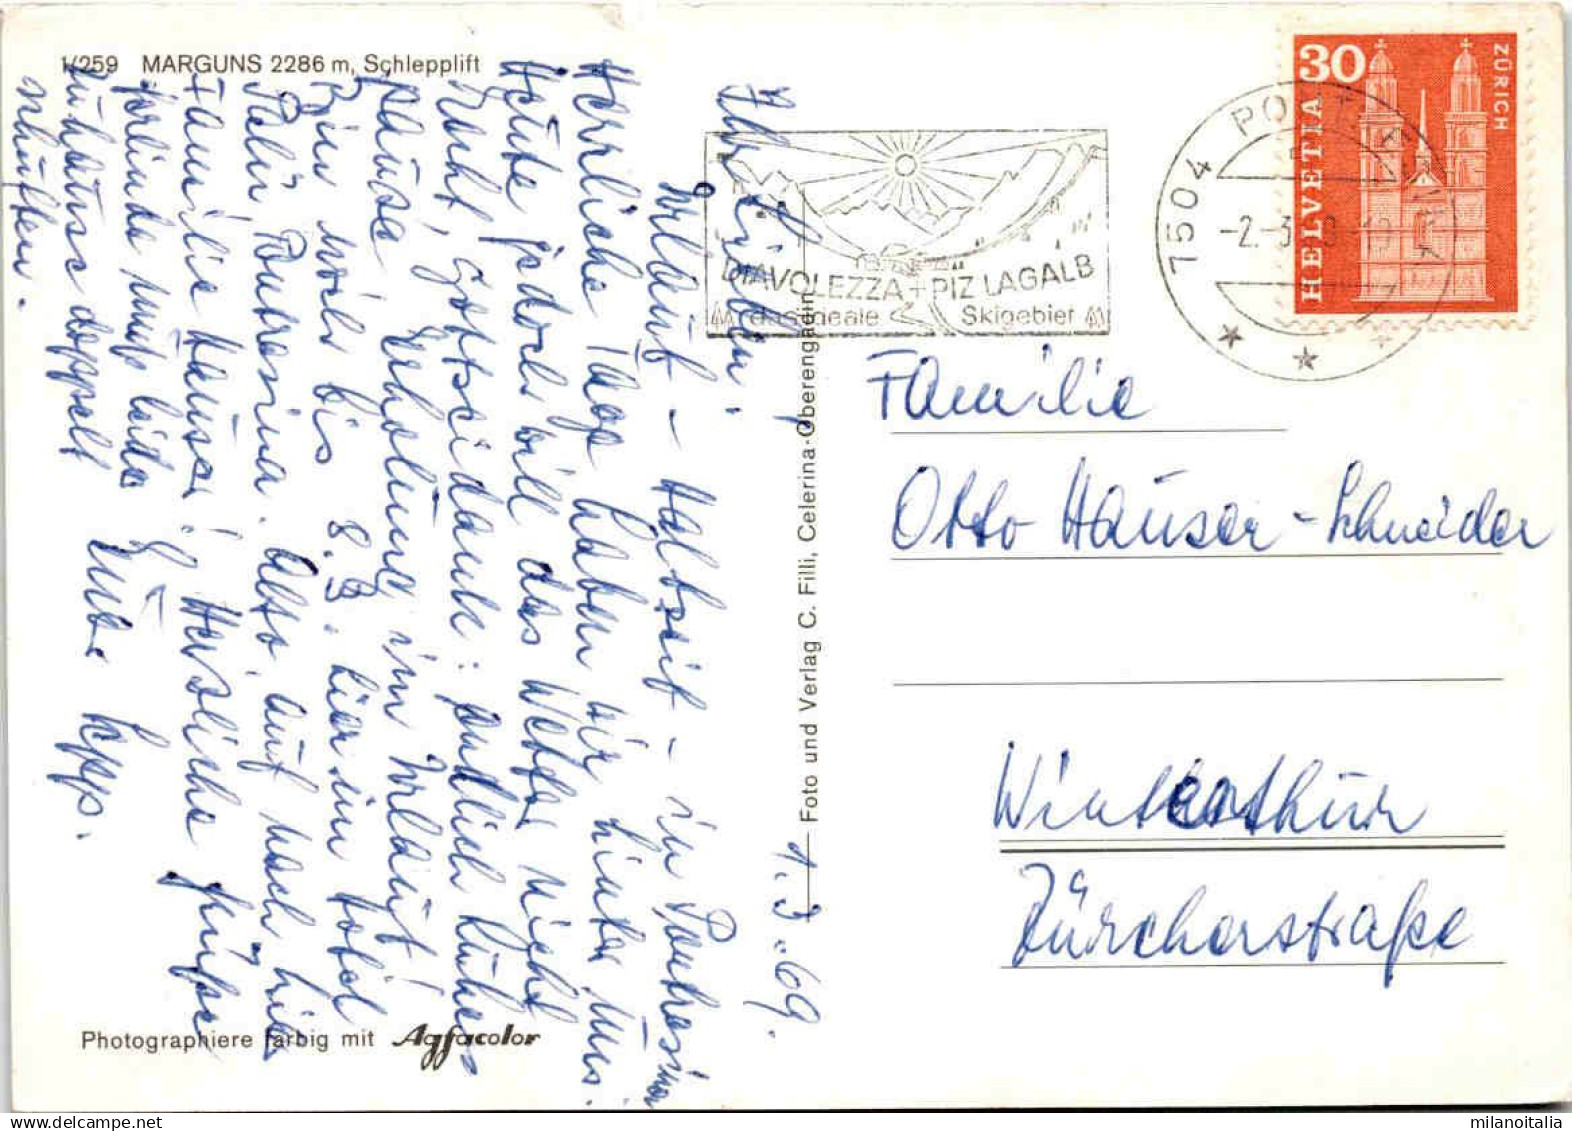 1/259 MARGUNS 2286 m, Schlepplift
Ihr Lieben!
1.3.69.
Urlaub – Halbzeit – in Pontresina
Herrliche Tage haben wir hinter uns.
Heute jedoch will das Wetter nicht
recht, Gottseidank: endlich
pause, Erholung im Urlaub!
Bin noch bis 8.3. hier im Hotel
Palü Pontresina. Also, auf nach hier
Familie Hauser! Herzliche Grüsse
Gerlinde muss leider
zuhause doppelt
schuften.
Eure
Photographiere farbig mit Agfacolor
Foto und Verlag C. Filli, Celerina-Oberengadin
DIAVOLEZZA + PIZ LAGALB
das ideale Skigebiet
7504 PONTRESINA
-2.-3.
30
HELVETIA
ZÜRICH
Familie
Otto Hauser-Schneider
Winterthur
Zürcherstraße
milanoitalia